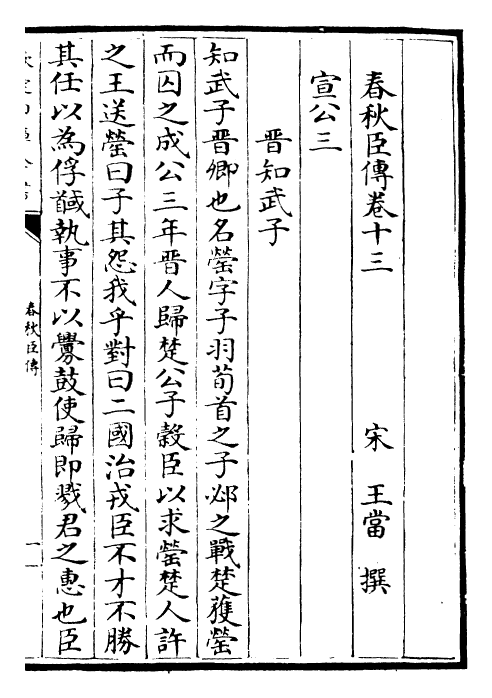 春秋臣傳卷十三
宋 王當 撰
宣公三
晋知武子
知武子晋卿也名罃字子羽荀首之子邲之戰楚獲罃
而囚之成公三年晋人歸楚公子榖臣以求罃楚人許
之王送罃曰子其怨我乎對曰二國治戎臣不才不勝
其任以為俘馘執事不以釁鼓使歸即戮君之惠也臣
春秋臣傳
一